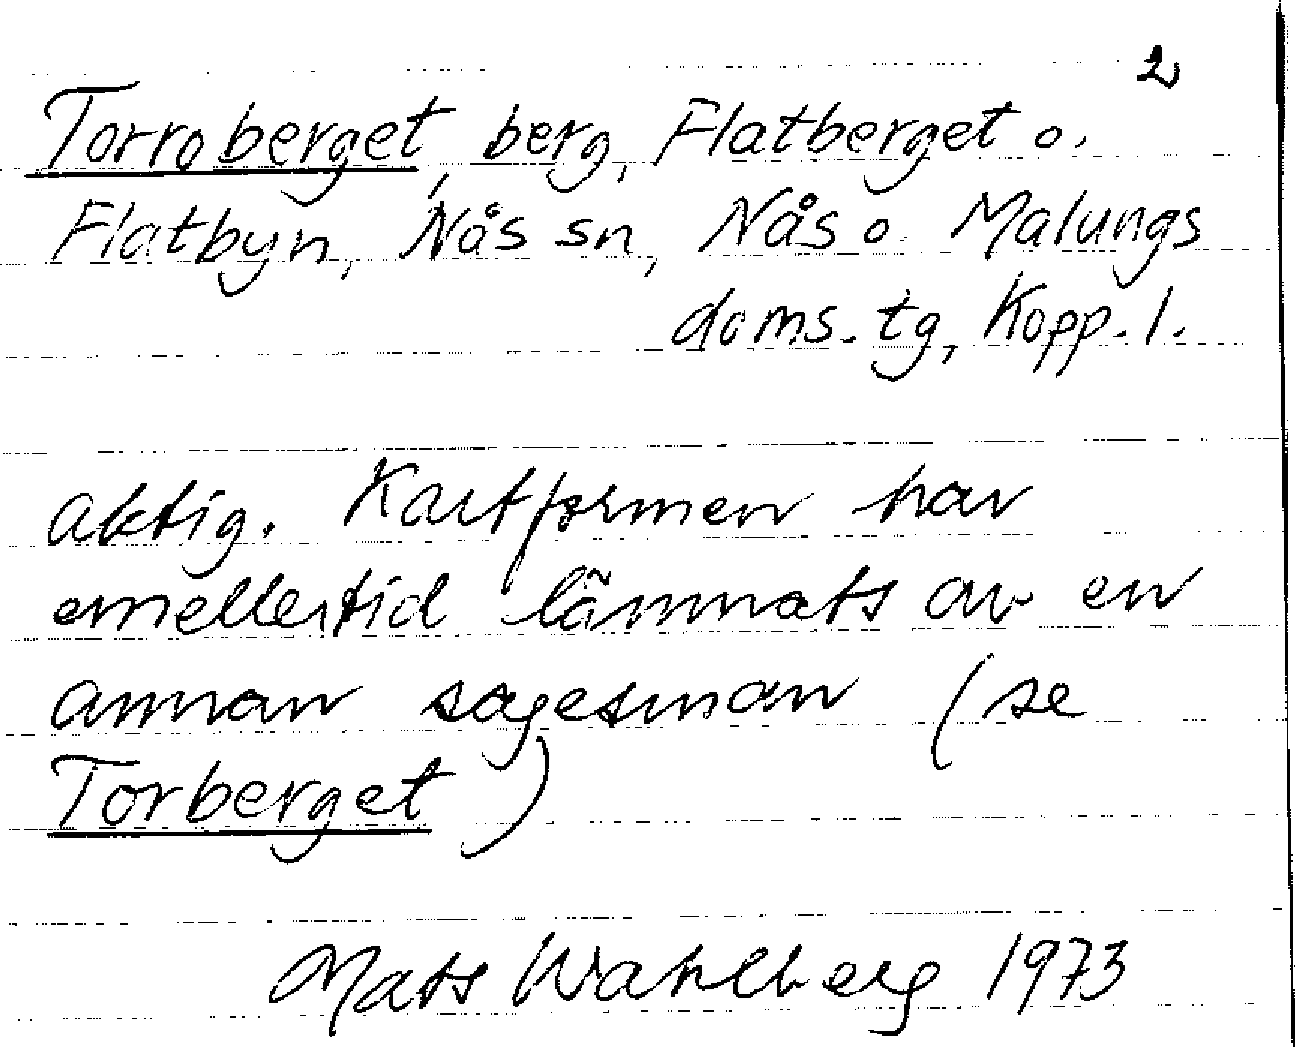 2
Torroberget, berg, Flatberget o.
Flatbyn, Nås sn, Nås o. Malungs
doms. tg, Kopp. l.
aktig. Kartformen har
emellertid lämnats av en
annan sagesman (se
Torberget)
Mats Wahlberg 1973